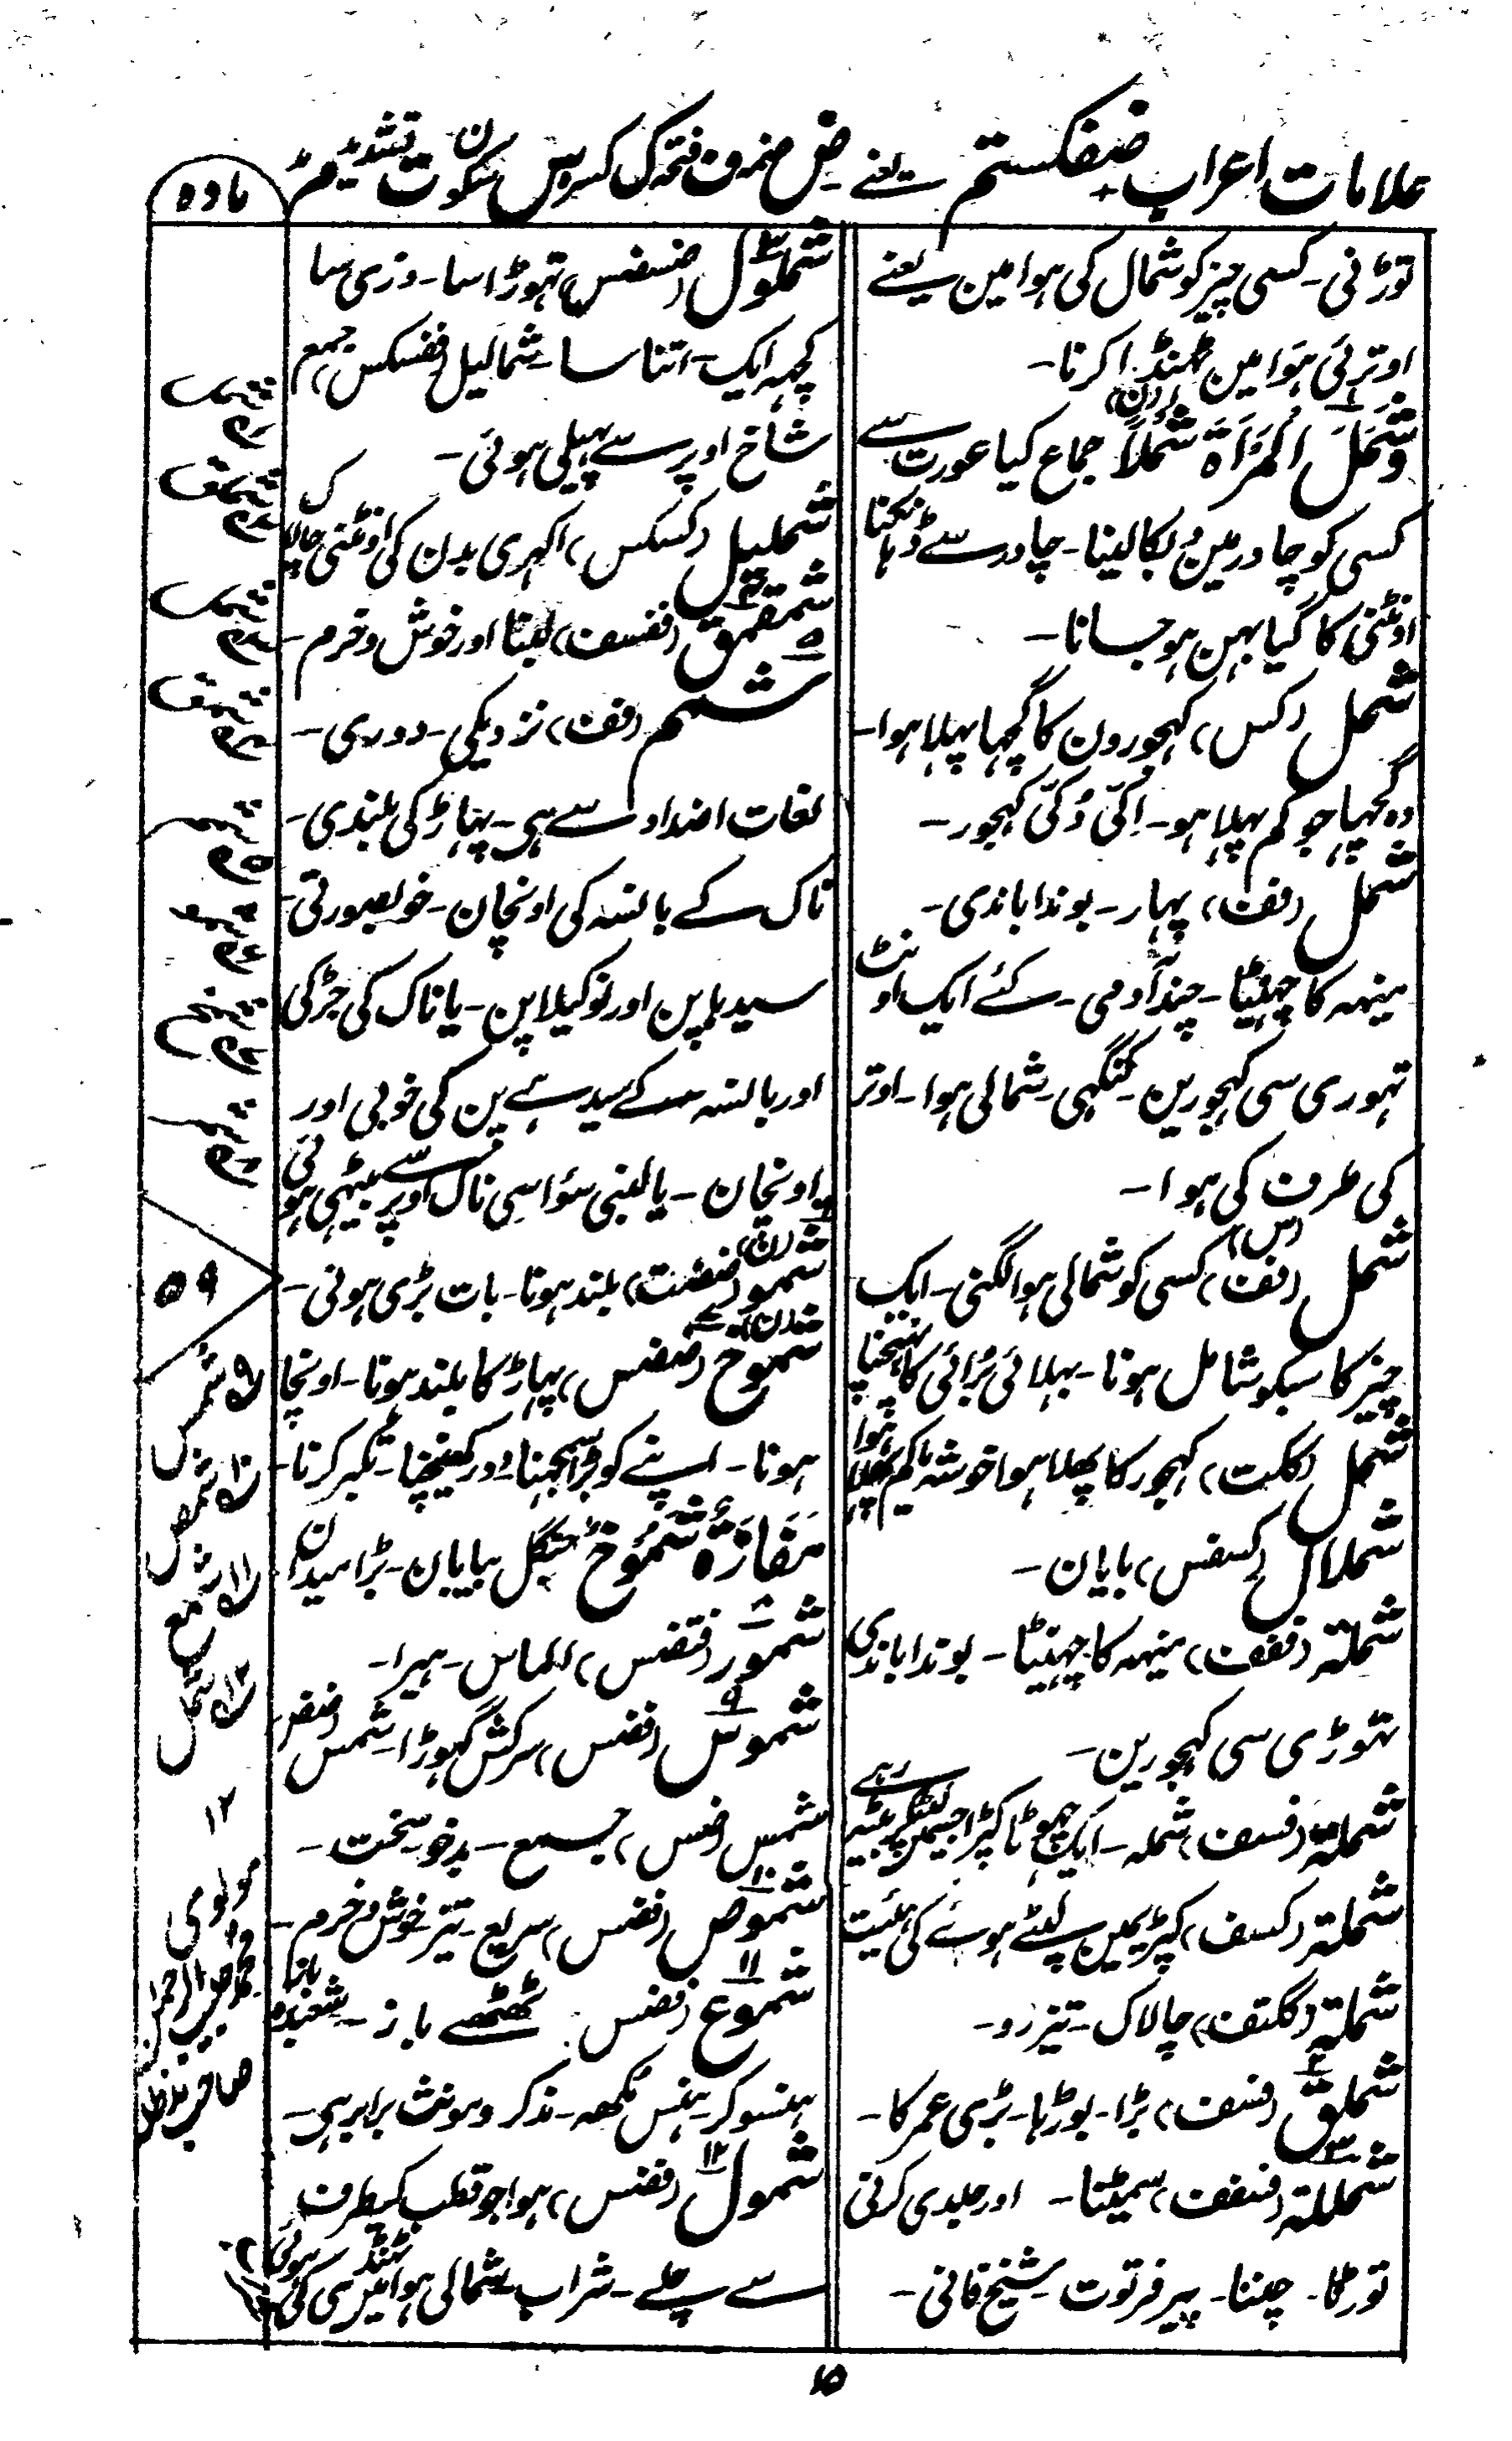 علامات اعراب ضفکستم یعنے ض ضمہ ف فتحہ ک کسرہ س سکون ت تشدید م مد
مادہ
توڑنی۔ کسی چیز کو شمال کی ہوا مین یعنے
اوترئی ہوا مین ٹھنڈا کرنا۔
وَشَمَلَ الْمَرْاَۃَ شَمْلاً جماع کیا عورت سے
کسی کو چادر مین بُکا لینا۔ چادر سے ڈہانکنا
اونٹنی کا گیابہن ہوجانا۔
شمل (کس) کہجورون کا گچہا پہلا ہوا۔
وہ گچہا جو کم پہلا ہو۔ اِکّی دُکّی کہجور۔
شمل (فف) پہار۔ بوندا باندی۔
مینہہ کا چہینٹا۔ چند آدمی۔ کئے ایک اونٹ
تہوری سی کہجورین۔ کنگہی۔ شمالی ہوا۔ اوتر
کی طرف کی ہوا۔
شمل (فف) (س) کسی کو شمالی ہوا لگنی۔ ایک
چیز کا سبکو شامل ہونا۔ بہلائی بُرائی کا پہنچنا
شمل (ککت) کہجور کا پھلا ہوا خوشہ یا کم پھلا ہوا
شملال (کسفس) بایان۔
شملة (ففف) مینہہ کا چہینٹا۔ بوندا باندی
تہوڑی سی کہجورین۔
شملة (فسف) شملہ۔ ایک چھوٹا کپڑا جسمین لپٹکر بیٹھے رہے
شملة (کسف) کپڑیمین لپٹے ہوئے کی ہئیت
شملة (ککتف) چالاک۔ تیز رو۔
شملق (فسف) بڑا۔ بوڑہا۔ بڑی عمر کا۔
شمللة (فسفف) سمیٹنا۔ اور جلدی کرنی
توڑنا۔ چننا۔ پیر فرتوت۔ شیخ فانی۔
شملول (ضسضس) تہوڑا سا۔ ذری سا
کچہہ ایک۔ اتنا سا۔ شمالیل (ففسکس) جمع
شاخ اوپر سے پہیلی ہوئی۔
شملیل (کسکس) اکہری بدن کی اونٹنی چالاک
شمقمق (ففسف) لمبا اور خوش و خرم۔
شمم (فف) نزدیکی۔ دوری۔
لغات اضداد سے ہی۔ پہاڑ کی بلندی۔
ناک کے بانسہ کی اونچان۔ خوبصورتی۔
سیدہاپن اور نوکیلا پن۔ یا ناک کی جڑ کی
اور بانسہ کے سیدہے پن کی خوبی اور
اونچان۔ یا لمبی سؤاسی ناک اوپر سے بیٹہی ہوئی
شمو (ضضت) (ن) بلند ہونا۔ بات بڑی ہونی۔
شموخ (ضضس) پہاڑ کا بلند ہونا۔ اونچا
ہونا۔ اپنے کو بڑا سمجہنا دور کہینچنا۔ تکبر کرنا۔
مَفَازَۃٌ شَمُوْخٌ جنگل بیابان۔ بڑا میدان
شمور (فتضس) الماس۔ ہیرا۔
شموس (فضس) سرکش گہوڑا۔ شمس (ضض)
شمس (ضس) جمع۔ بدخو۔ سخت۔
شموص (فضس) سریع۔ تیز۔ خوش و خرم۔
شموع (فضس) ٹھٹھے باز۔ شعبدہ باز
ہنسوکر۔ ہنس مکھہ۔ مذکر و مونث برابر ہی۔
شمول (فضس) ہوا جو قطب کیطرف
سے چلے۔ شراب شمالی ہوا مین سی کی ٹہنڈی ہوئی
۵۹
۱۲
مولوی
۱۵